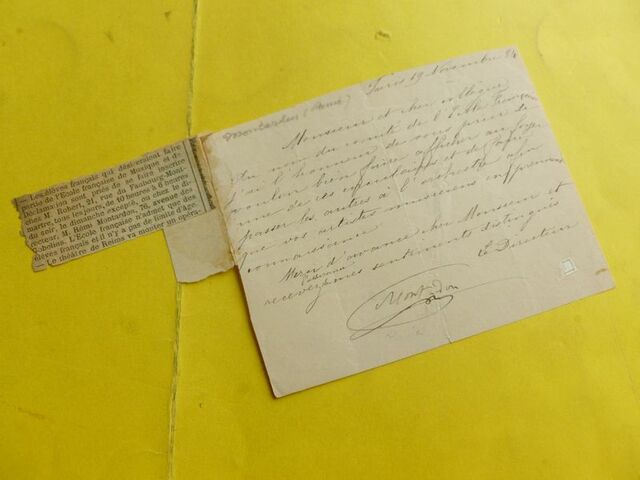 — Les élèves français qui désireraient faire
partie de l'Ecole française de Musique et de
Déclamation sont priés de se faire inscrire
chez M. Robert, 21, rue du Faubourg-Mont-
martre, tous les jours, de 10 heures à 6 heures
du soir, le dimanche excepté, ou chez le di-
recteur, M. Rémi Montardon, avenue des
Gobelins. L'Ecole française n'admet que des
élèves français et il n'y a pas de limite d'âge.
— Le théâtre de Reims va monter un opéra-
Montardon (Rémi)
Paris 19 Novembre 84
Monsieur et cher collègue
Au nom du comité de l'Ecole Française
j'ai l'honneur de vous prier de
vouloir bien faire afficher au foyer
une de ces circulaires et de faire
passer les autres à l'orchestre afin
que vos artistes musiciens en prennent
connaissance
Merci d'avance cher Monsieur et
recevez mes sentiments distingués
Le Directeur
Montardon